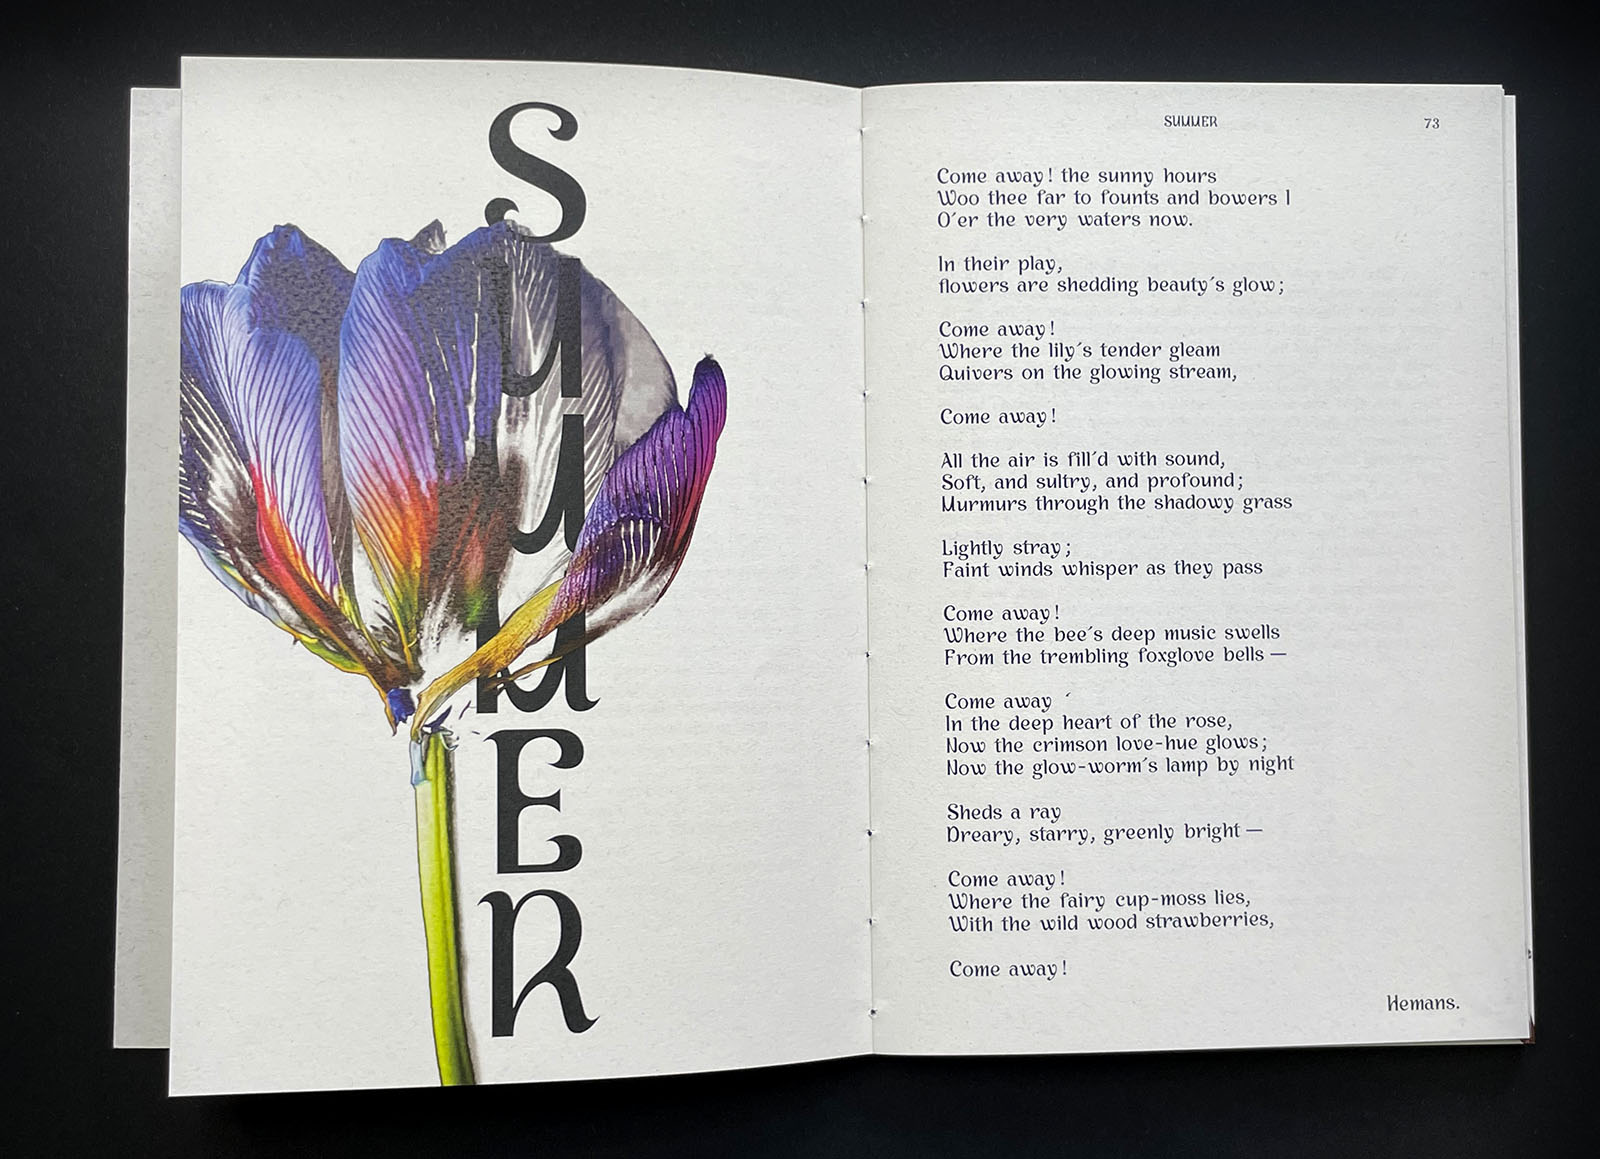 SUMMER
SUMMER 73
Come away! the sunny hours
Woo thee far to founts and bowers l
O´er the very waters now.
In their play,
flowers are shedding beauty´s glow;
Come away!
Where the lily´s tender gleam
Quivers on the glowing stream,
Come away!
All the air is fill´d with sound,
Soft, and sultry, and profound;
Murmurs through the shadowy grass
Lightly stray;
Faint winds whisper as they pass
Come away!
Where the bee´s deep music swells
From the trembling foxglove bells —
Come away ´
In the deep heart of the rose,
Now the crimson love-hue glows;
Now the glow-worm´s lamp by night
Sheds a ray
Dreary, starry, greenly bright —
Come away!
Where the fairy cup-moss lies,
With the wild wood strawberries,
Come away!
Hemans.